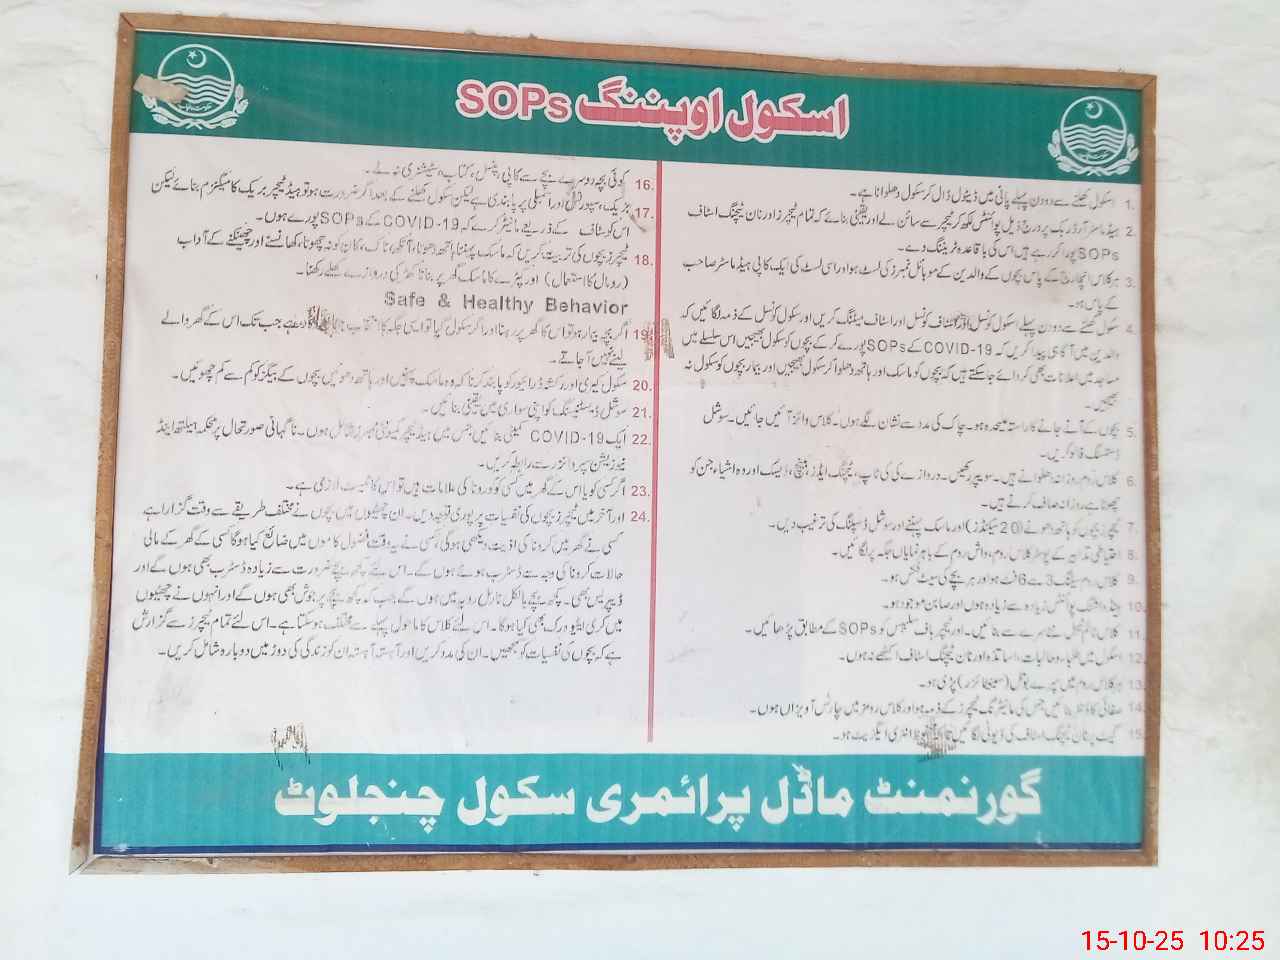 اسکول اوپننگ SOPs
1. اسکول کھلنے سے دو دن پہلے پانی میں ڈیٹول ڈال کر سکول دھلوانا ہے۔
2. ہیڈ ماسٹر آرڈر بک پر درج ذیل پوائنٹس لکھ کر ٹیچر سے سائن لے اور یقینی بنائے کہ تمام ٹیچرز اور نان ٹیچنگ اسٹاف
SOPs پورا کر رہے ہیں اس کی باقاعدہ ٹریننگ دے۔
3. ہر کلاس انچارج کے پاس بچوں کے والدین کے موبائل نمبرز کی لسٹ ہو اور اسی لسٹ کی ایک کاپی ہیڈ ماسٹر صاحب
کے پاس ہو۔
4. سکول کھلنے سے دو دن پہلے اسکول کونسل اور اسٹاف میٹنگ کریں اور سکول کونسل کے ذمہ لگائیں کہ
والدین میں آگاہی پیدا کریں کہ COVID-19 کے SOPs پورے کر کے بچوں کو سکول بھیجیں اس سلسلے میں
مساجد میں اعلانات بھی کروائے جا سکتے ہیں کہ بچوں کو ماسک اور ہاتھ دھلوا کر سکول بھیجیں اور بیمار بچوں کو سکول نہ
بھیجیں۔
5. بچوں کے آنے جانے کا راستہ علیحدہ ہو۔ چاک کی مدد سے نشان لگے ہوں۔ کلاس وائز آئیں جائیں۔ سوشل
ڈسٹنسنگ فالو کریں۔
6. کلاس روم روزانہ دھلوانے ہیں۔ سویپر رکھیں۔ دروازے کی ناپ، ٹیچنگ ایڈز، بینچ، ڈیسک اور وہ اشیاء جن کو
چھونا ہے روزانہ صاف کرنے ہیں۔
7. ٹیچرز بچوں کو ہاتھ دھونے (20 سیکنڈز) اور ماسک پہننے اور سوشل ڈسٹنسنگ کی ترغیب دیں۔
8. احتیاطی تدابیر کے پوسٹر کلاس روم، واش روم کے باہر نمایاں جگہ پر لگائیں۔
9. کلاس روم سیٹنگ 3 سے 6 فٹ ہو اور ہر بچے کی سیٹ فکس ہو۔
10. ہینڈ واشنگ پوائنٹس زیادہ سے زیادہ ہوں اور صابن موجود ہو۔
11. کلاس ٹائم ٹیبل نئے سرے سے بنائیں۔ اور ٹیچر ہاف سلیبس کو SOPs کے مطابق پڑھائیں۔
12. اسکول میں طلباء و طالبات، اساتذہ اور نان ٹیچنگ اسٹاف اکٹھے نہ ہوں۔
13. ہر کلاس روم میں سپرے بوتل (سینیٹائزر) پڑی ہو۔
14. صفائی کا بنائیں جس کی مانیٹرنگ ٹیچرز کے ذمہ ہو اور کلاس رومز میں چارٹس آویزاں ہوں۔
15. گیٹ پر نان ٹیچنگ اسٹاف کی ڈیوٹی لگائیں انٹری ایگزیٹ ہو۔
16. کوئی بچہ دوسرے بچے سے کاپی، پنسل، کتاب، سٹیشنری نہ لے۔
17. بریک، سپورٹس اور اسمبلی پر پابندی ہے لیکن سکول کھلنے کے بعد اگر ضرورت ہو تو ہیڈ ٹیچر بریک کا میکنزم بنائے لیکن
اس کو سٹاف کے ذریعے مانیٹر کرے کہ COVID-19 کے SOPs پورے ہوں۔
18. ٹیچرز بچوں کی تربیت کریں کہ ماسک پہننا، ہاتھ دھونا، آنکھ، ناک، کان کو نہ چھونا، کھانسنے اور چھینکنے کے آداب
(رومال کا استعمال) اور کپڑے کا ماسک گھر پر بنانا کھڑکی دروازے کھلے رکھنا۔
Safe & Healthy Behavior
19. اگر بچہ بیمار ہو تو اس کا گھر پر رہنا اور اگر سکول آ گیا تو ایسی جگہ کا انتخاب ہے جب تک اس کے گھر والے
لینے نہیں آ جاتے۔
20. سکول کیری اور رکشہ ڈرائیور کو پابند کرنا کہ وہ ماسک پہنیں اور ہاتھ دھوئیں بچوں کے بیگز کو کم سے کم چھوئیں۔
21. سوشل ڈسٹینسنگ کو اپنی سواری میں یقینی بنائیں۔
22. ایک COVID-19 کمیٹی بنائیں جس میں ہیڈ ٹیچر کمیونٹی ممبرز شامل ہوں۔ ناگہانی صورتحال پر محکمہ ہیلتھ اینڈ
نیوٹریشن سپروائزر سے رابطہ کریں۔
23. اگر کسی کو یا اس کے گھر میں کسی کو کورونا کی علامات ہیں تو اس کا ٹیسٹ لازمی ہے۔
24. اور آخر میں ٹیچرز بچوں کی نفسیات پر پوری توجہ دیں۔ ان چھٹیوں میں بچوں نے مختلف طریقے سے وقت گزارا ہے
کسی نے گھر میں کرونا کی اذیت دیکھی ہوگی، کسی نے یہ وقت فضول کاموں میں ضائع کیا ہوگا کسی کے گھر کے مالی
حالات کرونا کی وجہ سے ڈسٹرب ہوئے ہوں گے۔ اس لئے کچھ بچے ضرورت سے زیادہ ڈسٹرب بھی ہوں گے اور
ڈیپریس بھی۔ کچھ بچے بالکل نارمل رویہ میں ہوں گے جب کہ کچھ بچے پرجوش بھی ہوں گے اور انہوں نے چھٹیوں
میں کری ایٹیو ورک بھی کیا ہوگا۔ اس لئے کلاس کا ماحول پہلے سے مختلف ہو سکتا ہے۔ اس لئے تمام ٹیچرز سے گزارش
ہے کہ بچوں کی نفسیات کو سمجھیں۔ ان کی مدد کریں اور آہستہ آہستہ ان کو زندگی کی دوڑ میں دوبارہ شامل کریں۔
گورنمنٹ ماڈل پرائمری سکول چنجلوٹ
15-10-25 10:25